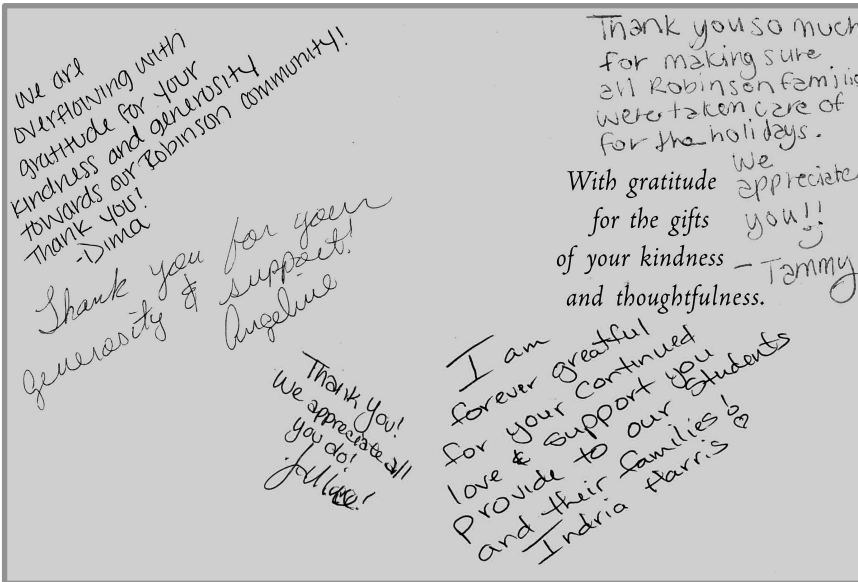 we are
overflowing with
gratitude for your
kindness and generosity
towards our Robinson community!
Thank you!
-Dima
Thank you for your
generosity & support!
Angeline
Thank you!
We appreciate all
you do!
Thank you so much
for making sure
all Robinson familie
were taken care of
for the holidays.
we
appreciate
you!!
- Tammy
With gratitude
for the gifts
of your kindness
and thoughtfulness.
I am
forever greatful
for your continued
love & support you
provide to our students
and their families!
Indria Harris